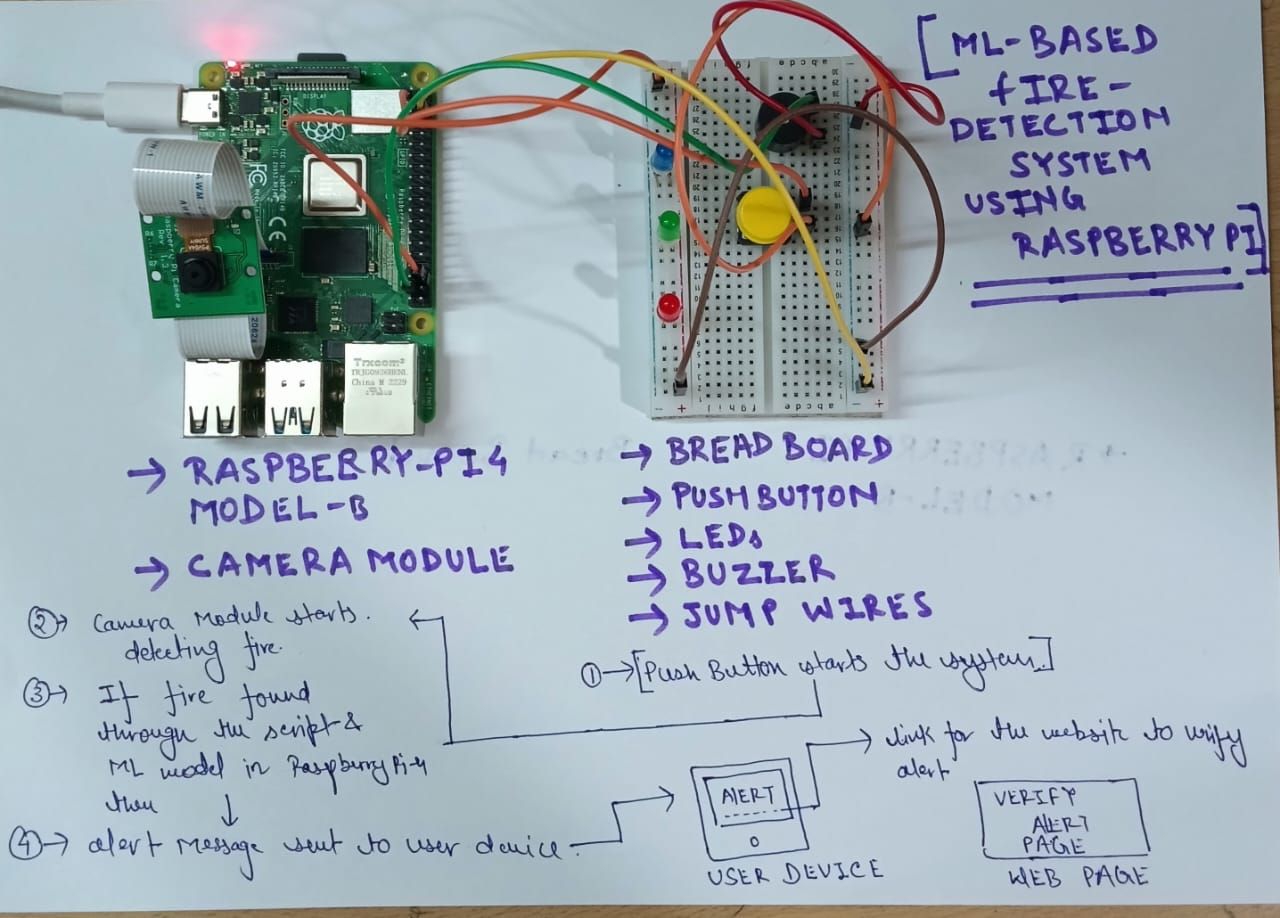 [ML-BASED
fIRE-
DETECTION
SYSTEM
USING
RASPBERRY PI]
DISPLAY
POWER IN
FC
CE
AWM
Raspberry Pi Camera
Rev 1.3
Trxcom
China M 2229
a b c d e
f g h i j
→ RASPBERRY-PI 4
MODEL-B
→ CAMERA MODULE
→ BREAD BOARD
→ PUSH BUTTON
→ LEDs
→ BUZZER
→ JUMP WIRES
①→[Push Button starts the system.]
②→ Camera Module starts.
detecting fire.
③→ If fire found
through the script &
ML model in Raspberry Pi-4
then
④→ alert message sent to user device.
ALERT
USER DEVICE
→ link for the website to verify
alert
VERIFY
ALERT
PAGE
WEB PAGE